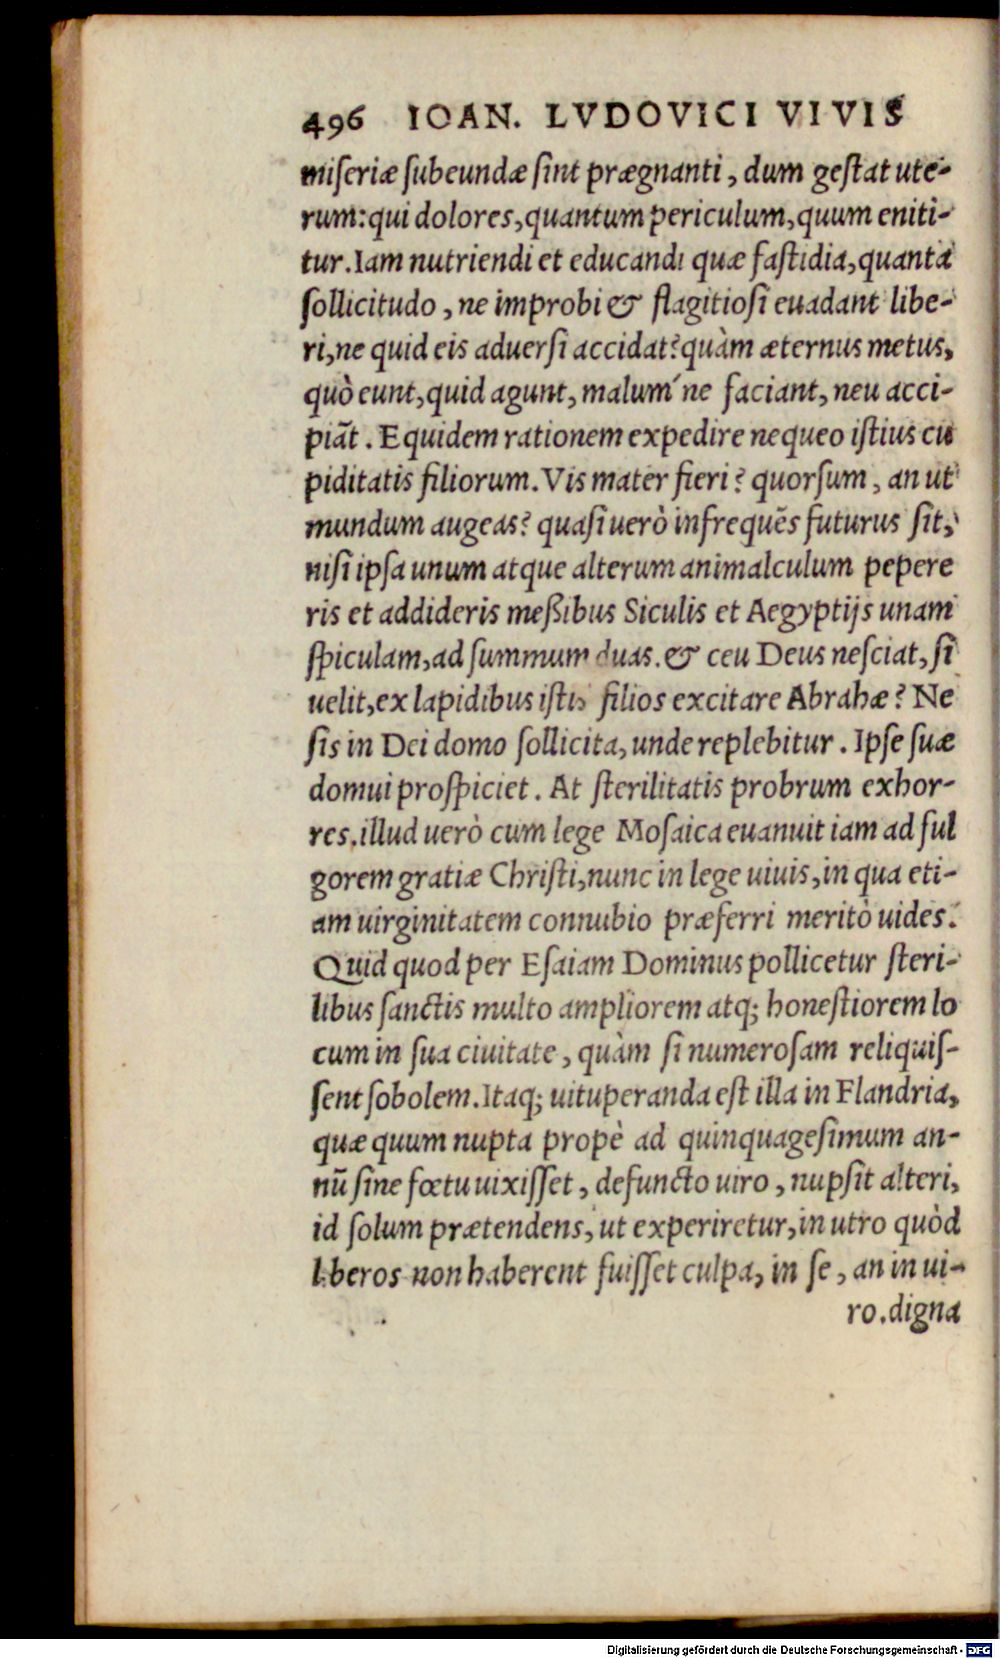 496 IOAN. LVDOVICI VIVIS
miseriæ subeundæ sint prægnanti, dum gestat ute-
rum: qui dolores, quantum periculum, quum eniti-
tur. Iam nutriendi et educandi quæ fastidia, quanta
sollicitudo, ne improbi & flagitiosi euadant libe-
ri, ne quid eis aduersi accidat? quàm æternus metus,
quò eunt, quid agunt, malum´ne faciant, neu acci-
piãt. Equidem rationem expedire nequeo istius cu
piditatis filiorum. Vis mater fieri? quorsum, an ut
mundum augeas? quasi uerò infrequẽs futurus sit,
nisi ipsa unum atque alterum animalculum pepere
ris et addideris meßibus Siculis et Aegyptijs unam
spiculam, ad summum duas. & ceu Deus nesciat, si
uelit, ex lapidibus istis filios excitare Abrahæ? Ne
sis in Dei domo sollicita, unde replebitur. Ipse suæ
domui prospiciet. At sterilitatis probrum exhor-
res. illud uerò cum lege Mosaica euanuit iam ad ful
gorem gratiæ Christi, nunc in lege uiuis, in qua eti-
am uirginitatem connubio præferri meritò uides.
Quid quod per Esaiam Dominus pollicetur steri-
libus sanctis multo ampliorem atq; honestiorem lo
cum in sua ciuitate, quàm si numerosam reliquis-
sent sobolem. Itaq; uituperanda est illa in Flandria,
quæ quum nupta propè ad quinquagesimum an-
nũ sine fœtu uixisset, defuncto uiro, nupsit alteri,
id solum prætendens, ut experiretur, in utro quòd
liberos non haberent fuisset culpa, in se, an in ui-
ro. digna
Digitalisierung gefördert durch die Deutsche Forschungsgemeinschaft - DFG